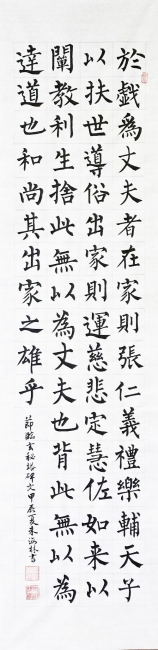 於戯為丈夫者在家則張仁義禮樂輔天子
以扶世導俗出家則運慈悲定慧佐如来以
闡教利生捨此無以為丈夫也背此無以為
達道也和尚其出家之雄乎
節臨玄秘塔碑文甲辰夏朱
書